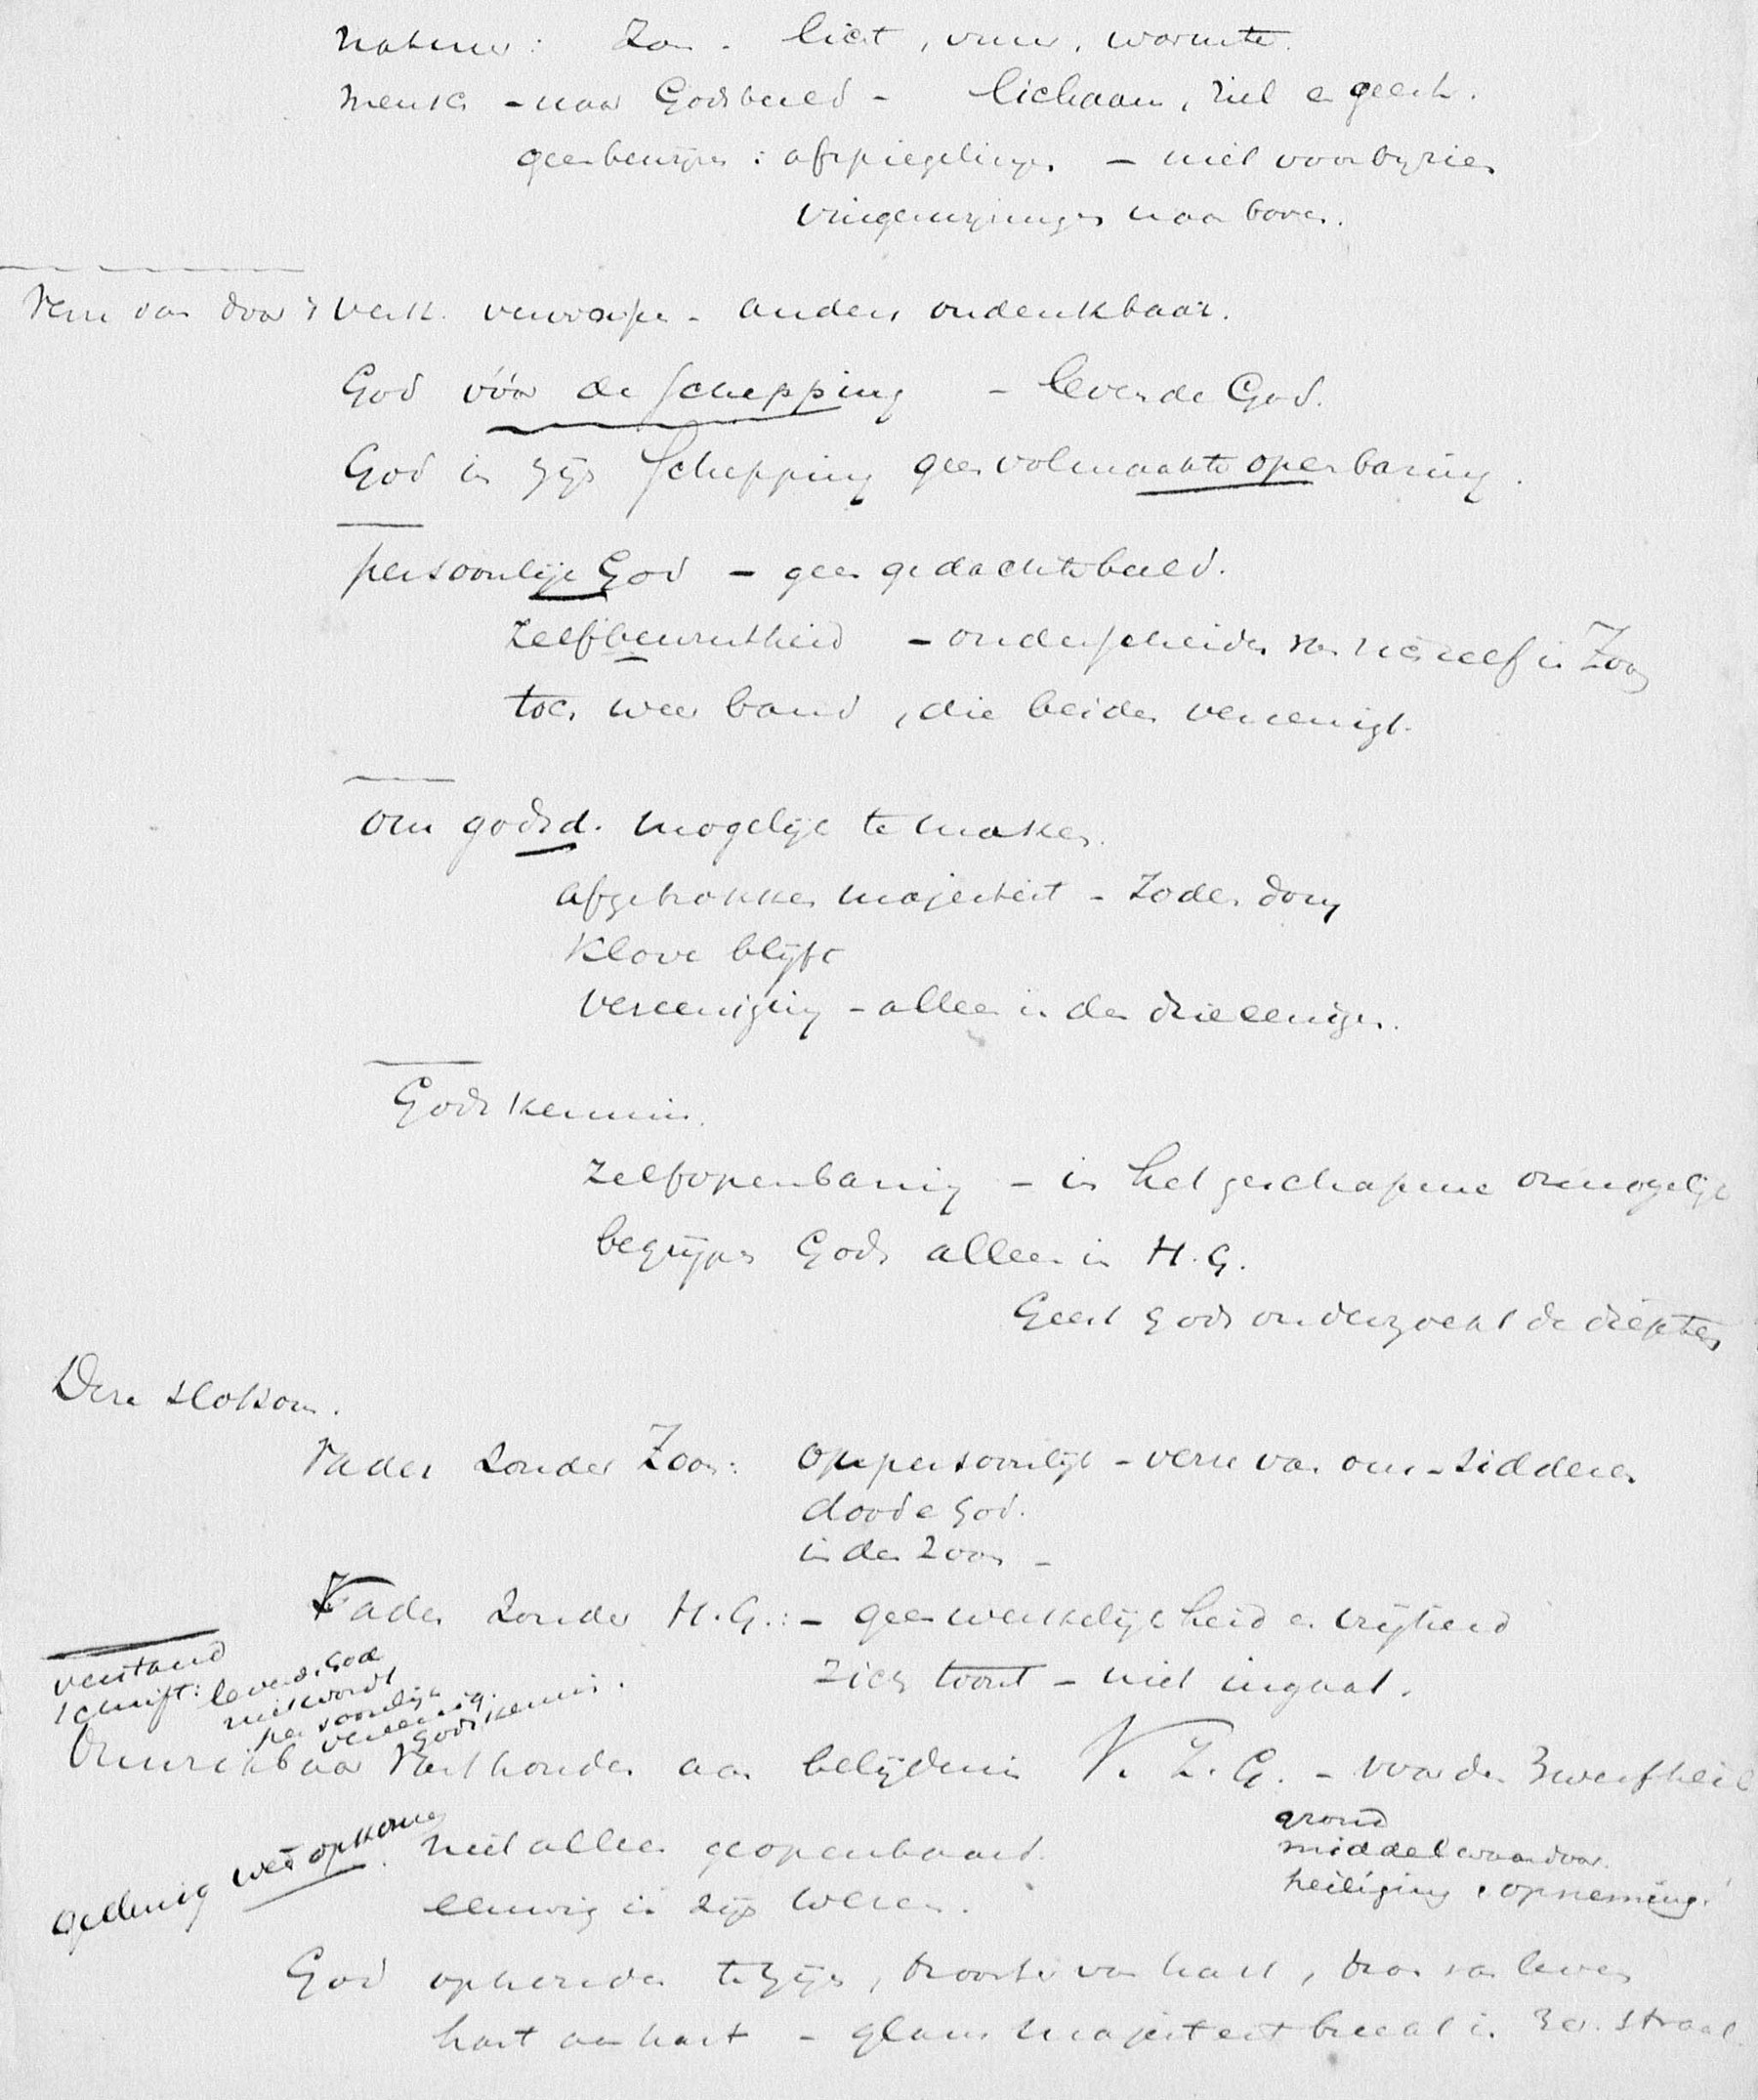 natuur: Zon - licht, vuur, warmte.
mensch - naar Godsbeeld - lichaam, ziel en geest.
geen bewijzen: afspiegelingen - niet voorbijzien
vingerwijzingen naar boven.
Verre van door 't verst. verworpen - anders ondenkbaar.
God vóór de Schepping - levende God.
God in zijn Schepping geen volmaakte openbaring.
persoonlijke God - geen gedachtebeeld.
zelfbewustheid - onderscheiden van zichzelf in Zoon
toch weer band, die beiden vereenigt.
om godsd. mogelijk te maken.
afgetrokken majesteit - zoden
Klove blijft
vereeniging - alleen in den drieeenigen.
Gods kennis.
zelfopenbaring - in het geschapene onmogelijk
begrijpen Gods alleen in H.G.
Geest Gods onderzoekt de diepten
Deze slotsom.
Vader zonder Zoon: onpersoonlijk - verre van ons - sidderen
doode God.
in den Zoon -
Vader zonder H.G.: - geen werkelijkheid en vrijheid
zich toont - niet ingaat.
verstand
schrift: levend. God
niet wordt
persoonlijk
vereenig.
Gods kennis.
Onwrikbaar Vasthouden aan belijdenis V. Z. G. - voorden 3 werf heil
grond
middel waardoor.
heiliging, opneming.
niet alleen geopenbaard.
eeuwig in zijn wezen.
God ophouden te zijn, troost van hart, bron van leven
hart aan hart - glans majesteit breekt in 3 er. straal